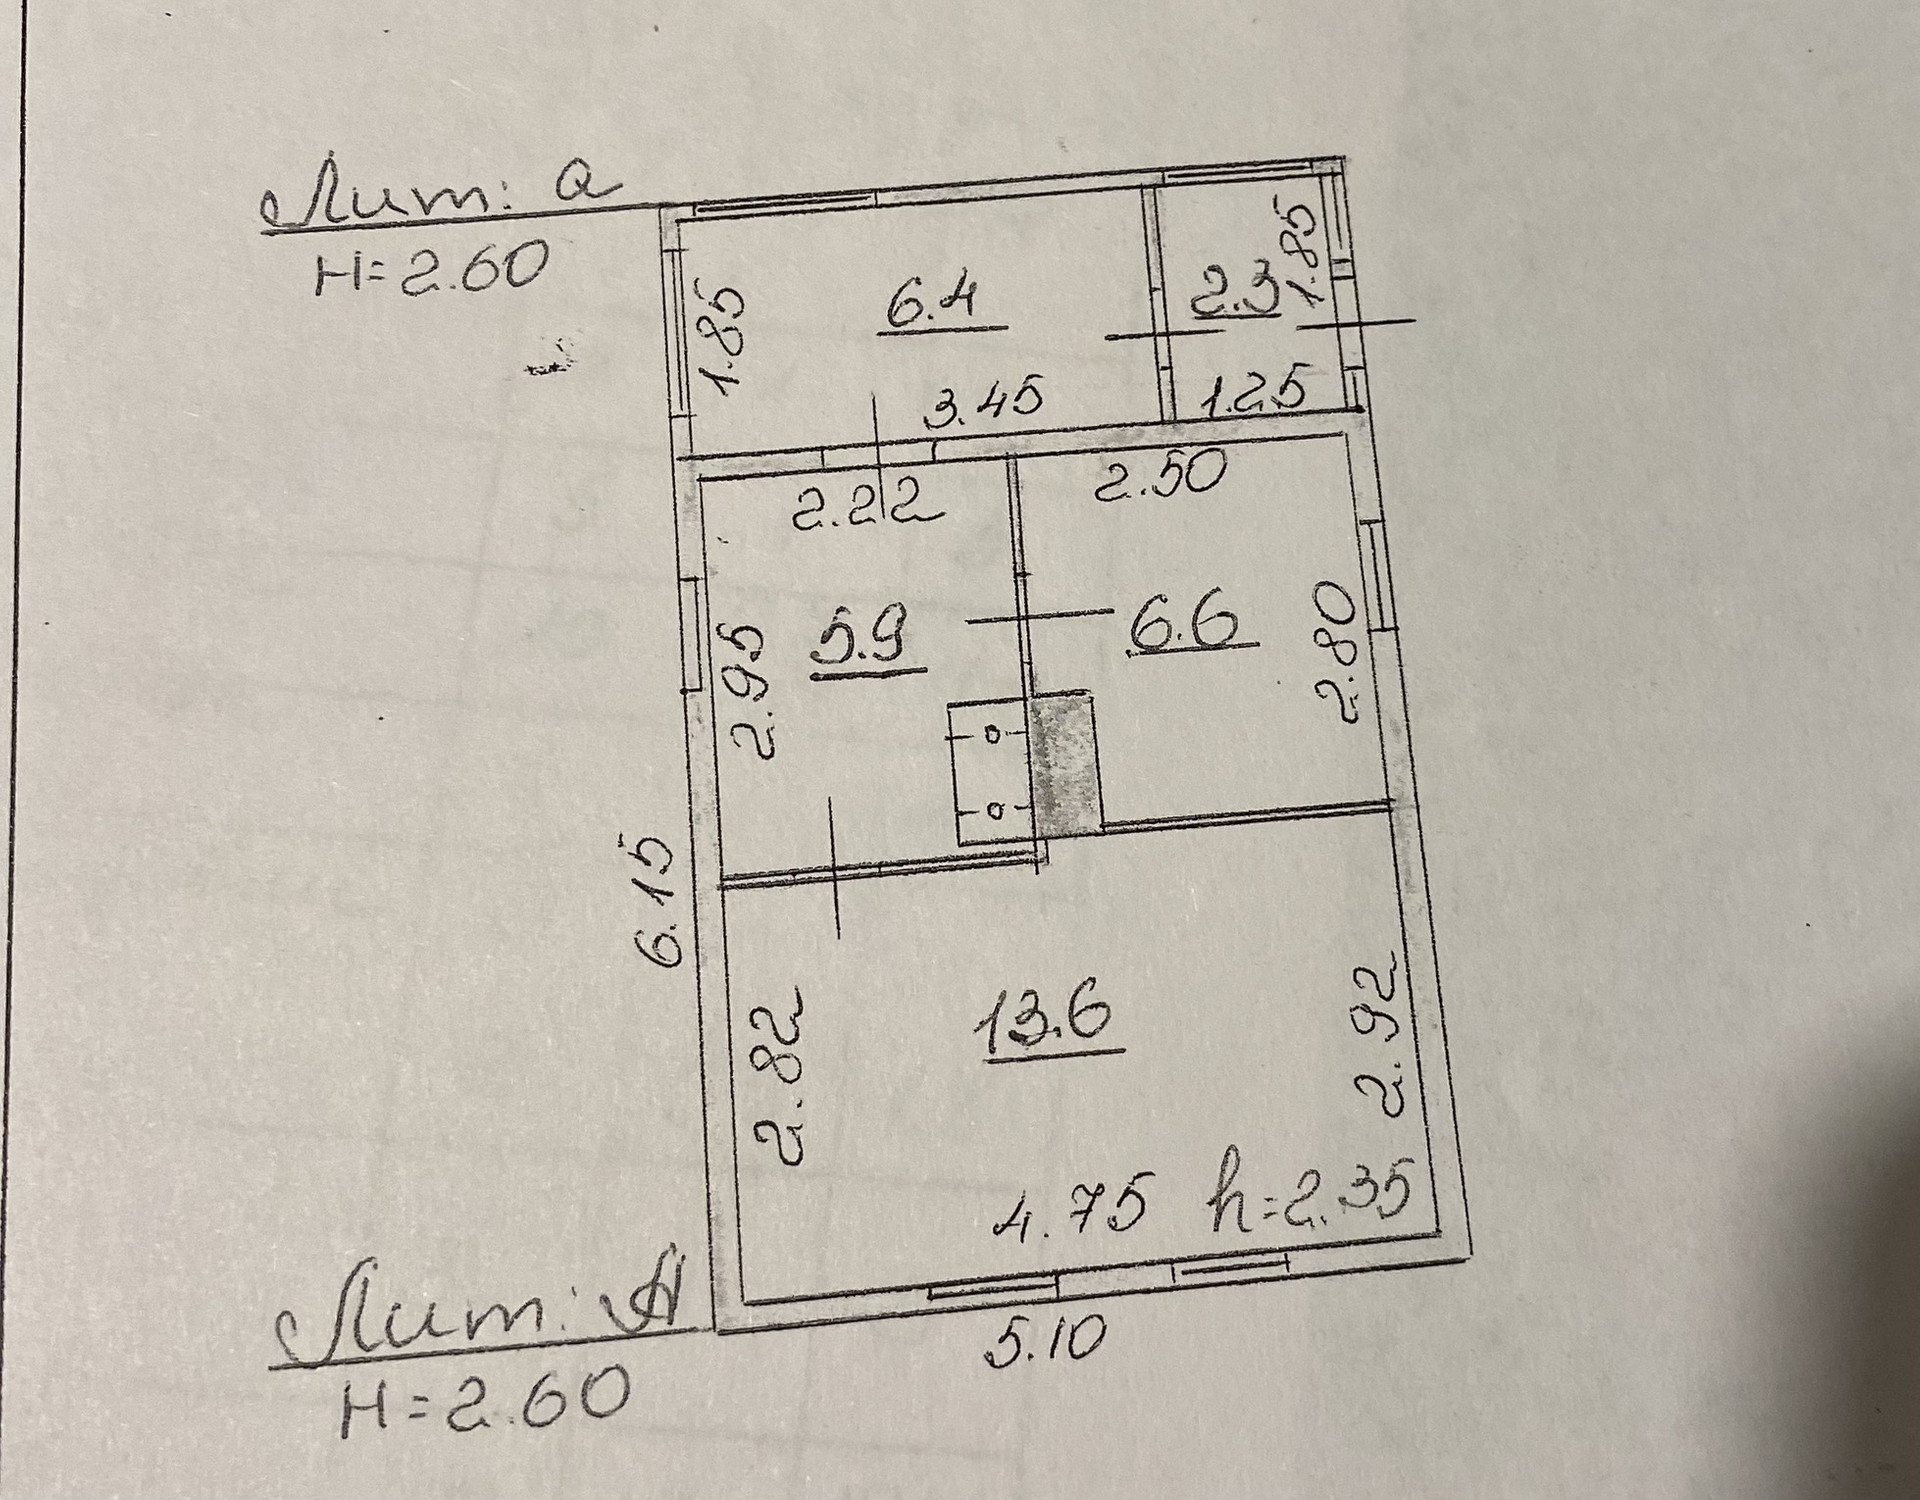 Лит: а
Н=2.60
1.85
6.4
2.3
1.85
3.45
1.25
2.22
2.50
2.95
5.9
6.6
2.80
6.15
2.82
13.6
2.92
4.75
h=2.35
Лит: А
Н=2.60
5.10